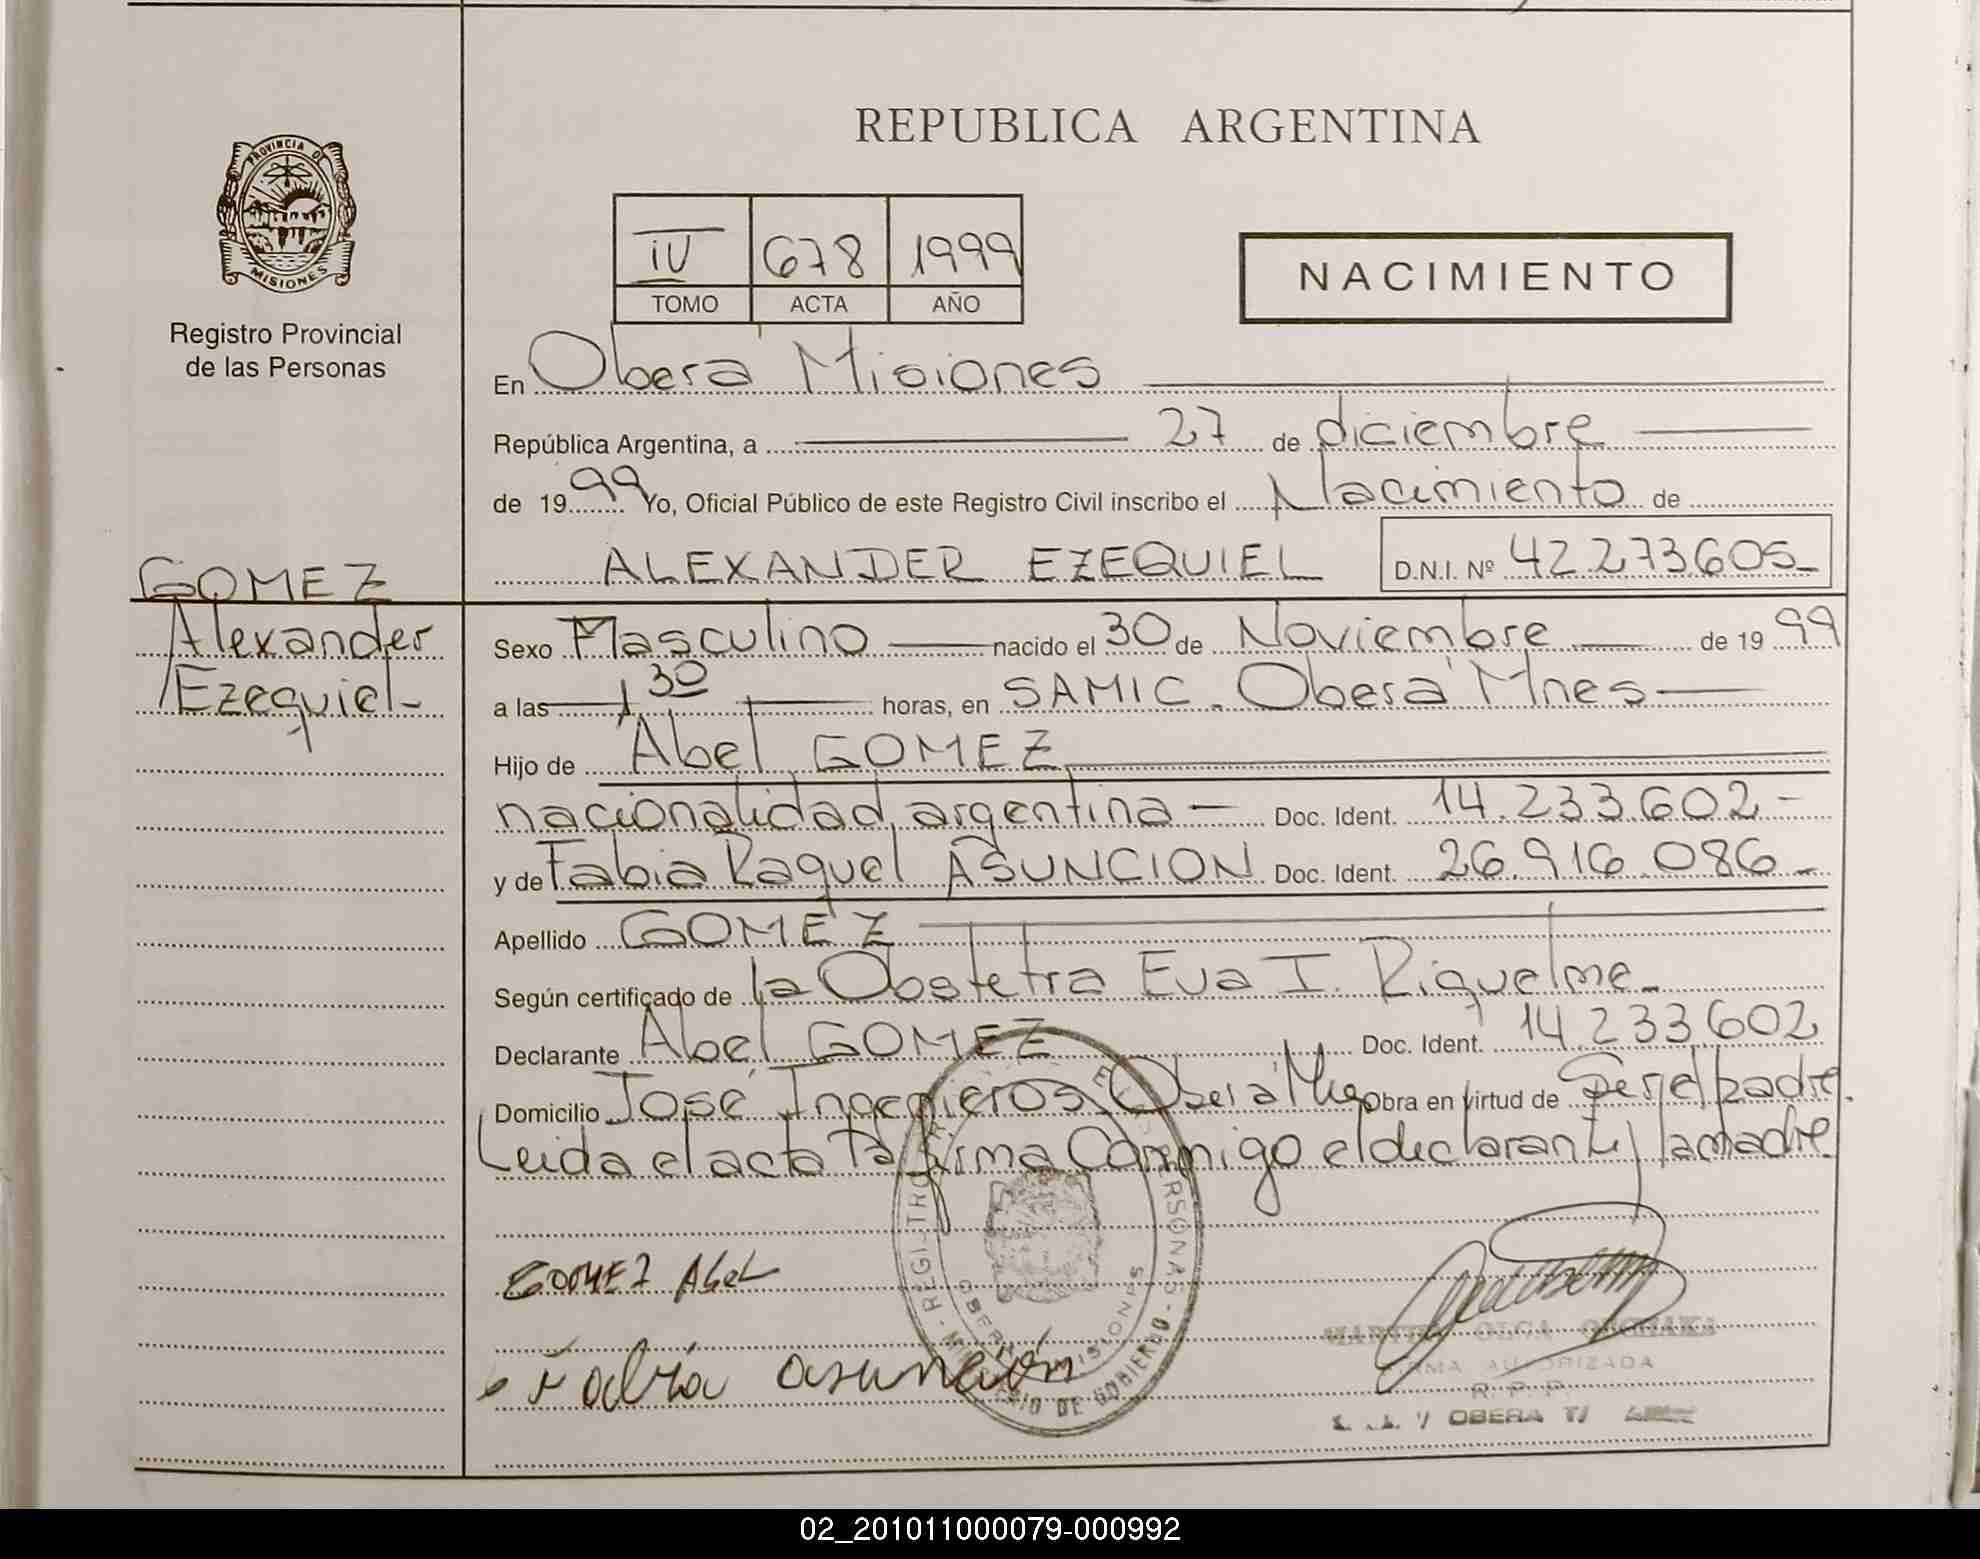 REPUBLICA ARGENTINA
PROVINCIA DE
MISIONES
Registro Provincial
de las Personas
IV 678 1999
TOMO ACTA AÑO
NACIMIENTO
En Oberá Misiones
República Argentina, a 27 de diciembre
de 1999 Yo, Oficial Público de este Registro Civil inscribo el Nacimiento de
ALEXANDER EZEQUIEL D.N.I. Nº 42.273.605-
GOMEZ
Alexander
Ezequiel-
Sexo Masculino nacido el 30 de Noviembre de 1999
a las 1,30 horas, en SAMIC. Oberá Mnes
Hijo de Abel GOMEZ
nacionalidad argentina - Doc. Ident. 14.233.602-
y de Fabia Raquel ASUNCION Doc. Ident. 26.916.086-
Apellido GOMEZ
Según certificado de la Obstetra Eva I. Riquelme-
Declarante Abel GOMEZ Doc. Ident. 14.233.602
Domicilio José Ingenieros Oberá Obra en virtud de Ser el padre.
Leida el acta la firma Conmigo el declarante y la madre.
GOMEZ Abel
Fabia asunción
OLGA
FIRMA AUTORIZADA
R. P. P.
OBERA
02_201011000079-000992